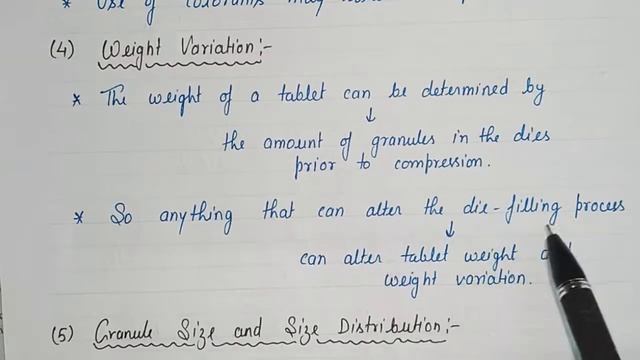 * Use of colorants may
(4) Weight Variation:-
* The weight of a tablet can be determined by
↓
the amount of granules in the dies
prior to compression.
* So anything that can alter the die-filling process
↓
can alter tablet weight
weight variation.
(5) Granule Size and Size Distribution:-